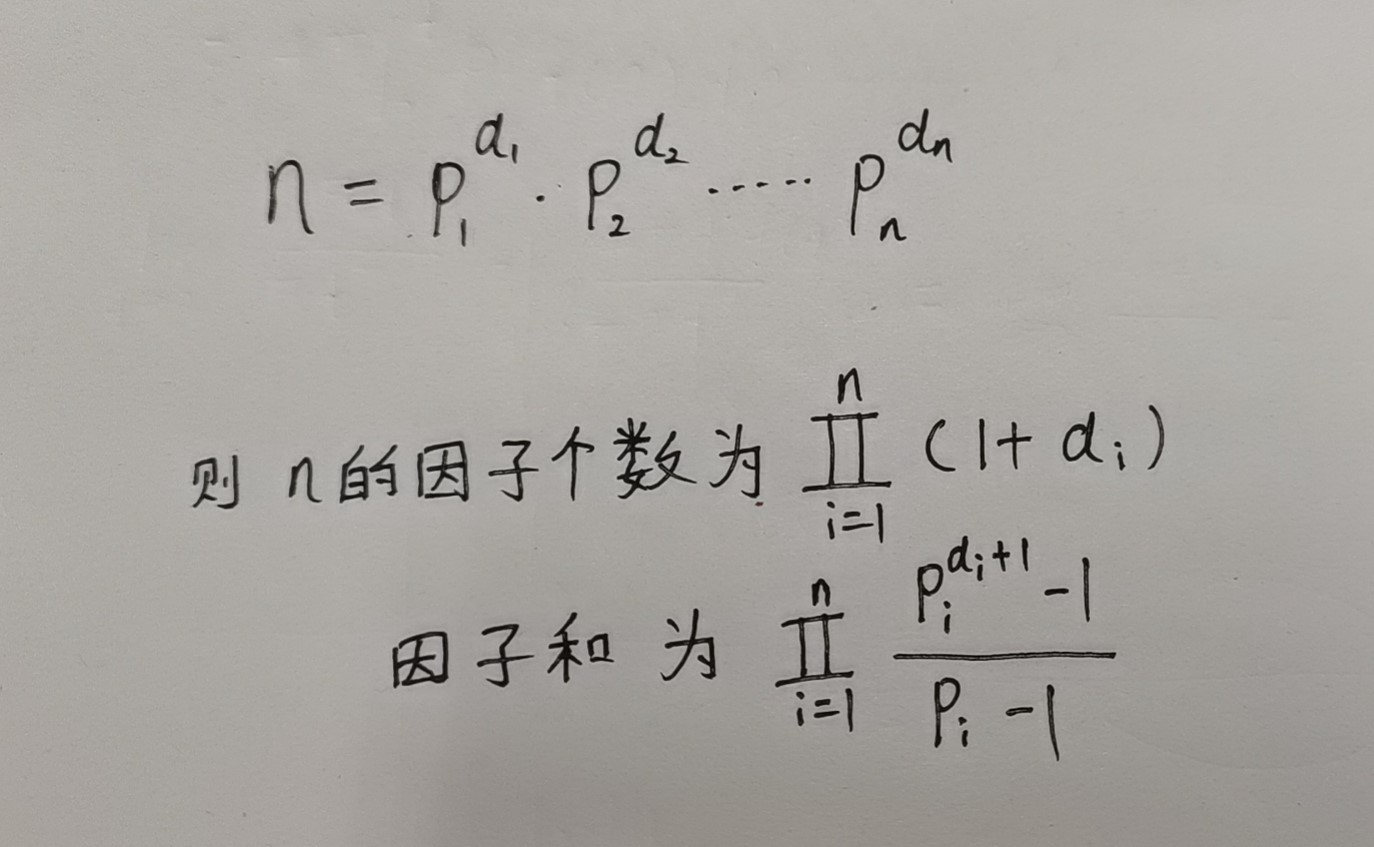 n = p₁^d₁ · p₂^d₂ ······ pₙ^dₙ
则 n的因子个数为 ∏_{i=1}^{n} (1+d_i)
因子和 为 ∏_{i=1}^{n} (p_i^{d_i+1} -1)/(p_i -1)